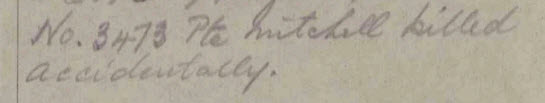 No. 3473 Pte Mitchell killed
accidentally.